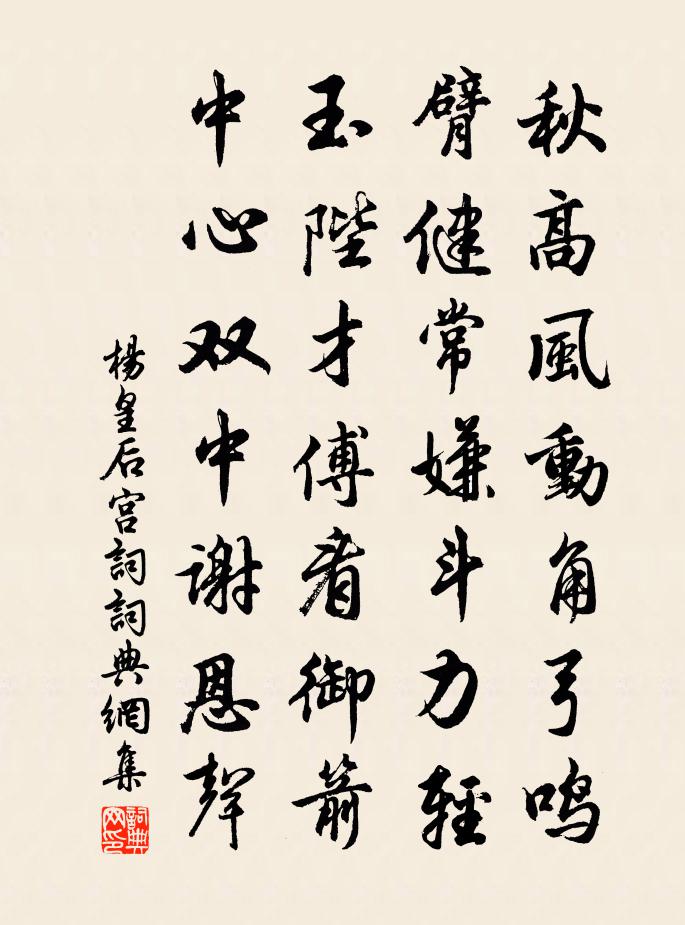 秋高風動角弓鸣
臂健常嫌斗力輕
玉陛才傅看御箭
中心双中謝恩聲
楊皇后宫詞詞典網集
詞典网印